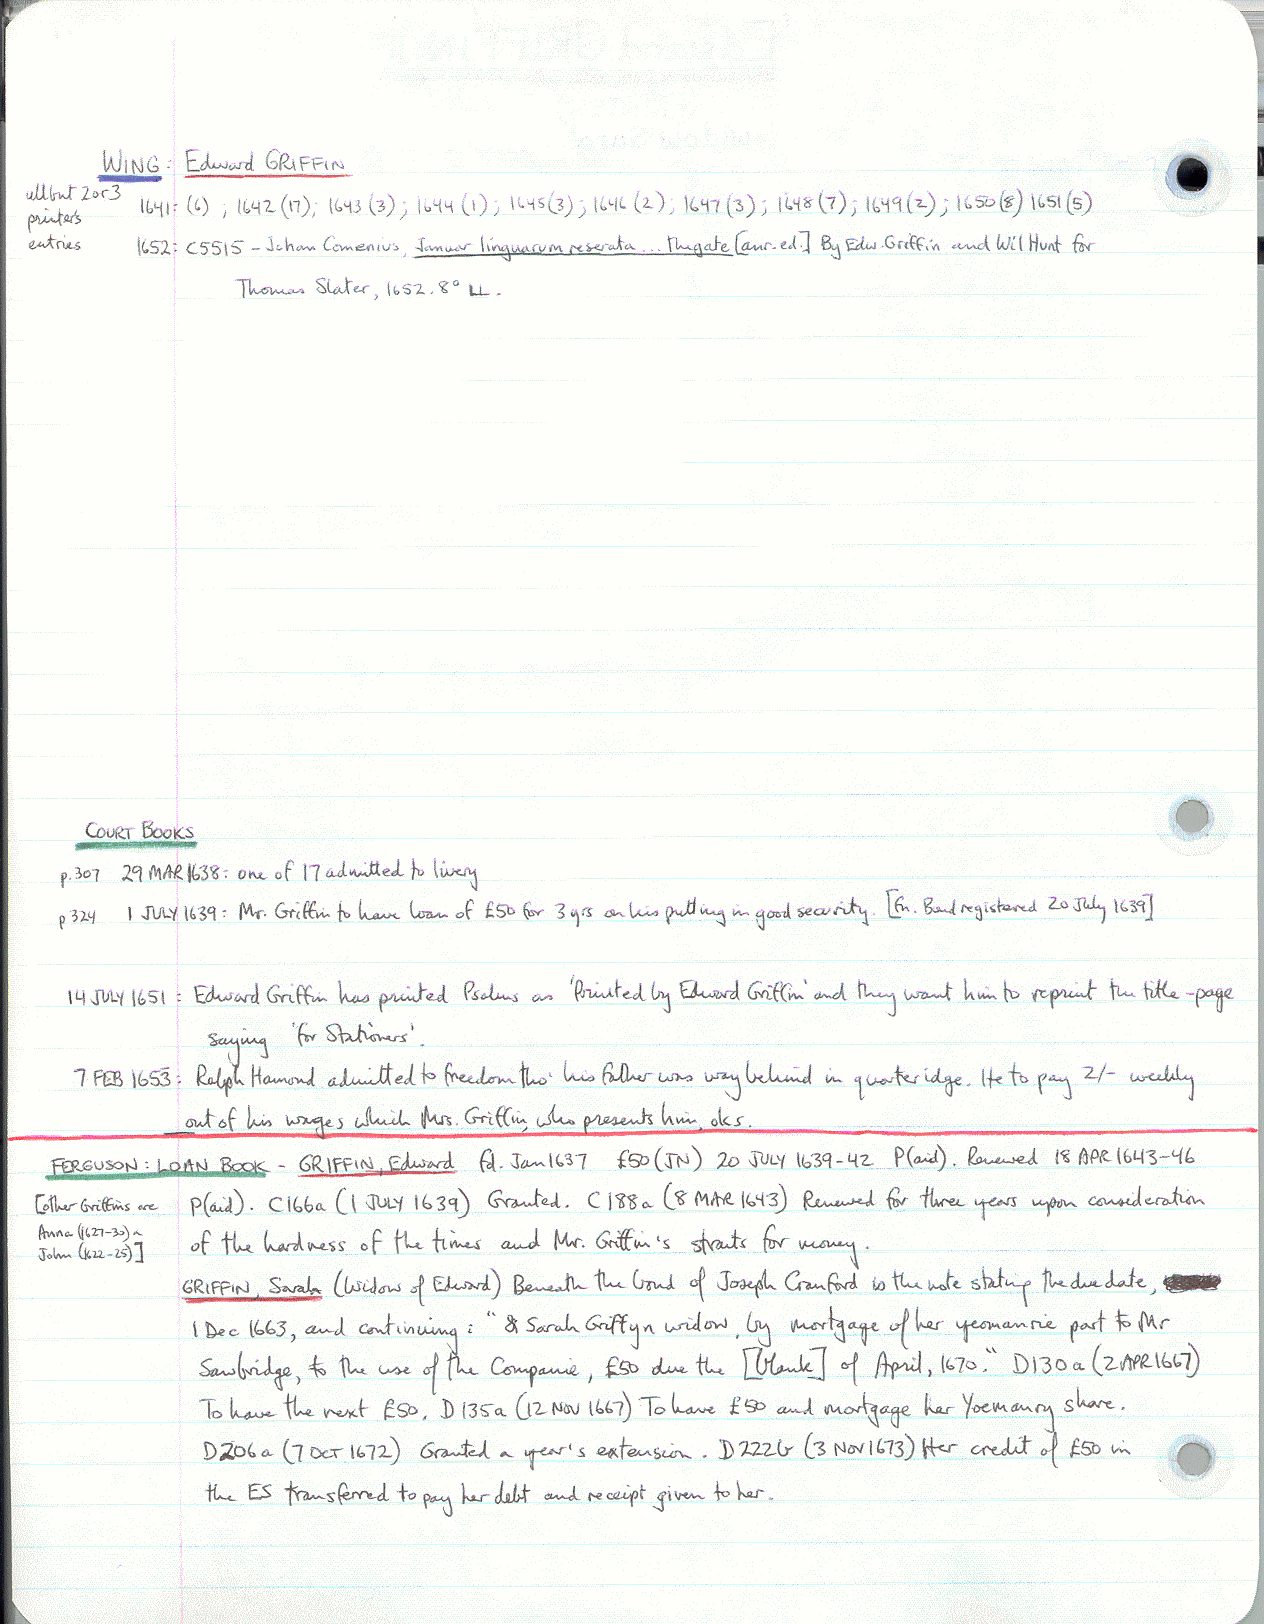 WING: Edward GRIFFIN
all but 2 or 3 printer's entries
1641: (6) ; 1642 (17); 1643 (3); 1644 (1); 1645 (3); 1646 (2); 1647 (3); 1648 (7); 1649 (2); 1650 (8) 1651 (5)
1652: C5515 – Johan Comenius, Januar linguarum reserata ... The gate [anr. ed.] By Edw. Griffin and Wil Hunt for
Thomas Slater, 1652. 8° LL.
COURT BOOKS
p.307 29 MAR 1638: one of 17 admitted to livery
p 324 1 JULY 1639: Mr. Griffin to have loan of £50 for 3 yrs on his putting in good security. [Fn. Bond registered 20 July 1639]
14 JULY 1651: Edward Griffin has printed Psalms as 'Printed by Edward Griffin' and they want him to reprint the title-page
saying 'for Stationers'.
7 FEB 1653: Ralph Hamond admitted to freedom tho' his father was way behind in quarteridge. He to pay 2/- weekly
out of his wages which Mrs. Griffin, who presents him, oks.
FERGUSON: LOAN BOOK – GRIFFIN, Edward fd. Jan 1637 £50 (JN) 20 JULY 1639-42 P(aid). Renewed 18 APR 1643-46
[other Griffins are Anna (1627-30) & John (1622-25)]
P(aid). C166a (1 JULY 1639) Granted. C188a (8 MAR 1643) Renewed for three years upon consideration
of the hardness of the times and Mr. Griffin's straits for money.
GRIFFIN, Sarah (Widow of Edward) Beneath the bond of Joseph Cranford is the note stating the due date,
1 Dec 1663, and continuing: "& Sarah Griffyn widow, by mortgage of her yeomanrie part to Mr
Sawbridge, to the use of the Companie, £50 due the [blank] of April, 1670." D130a (2 APR 1667)
To have the next £50. D135a (12 NOV 1667) To have £50 and mortgage her Yoemanry share.
D206a (7 OCT 1672) Granted a year's extension. D222b (3 NOV 1673) Her credit of £50 in
the ES transferred to pay her debt and receipt given to her.